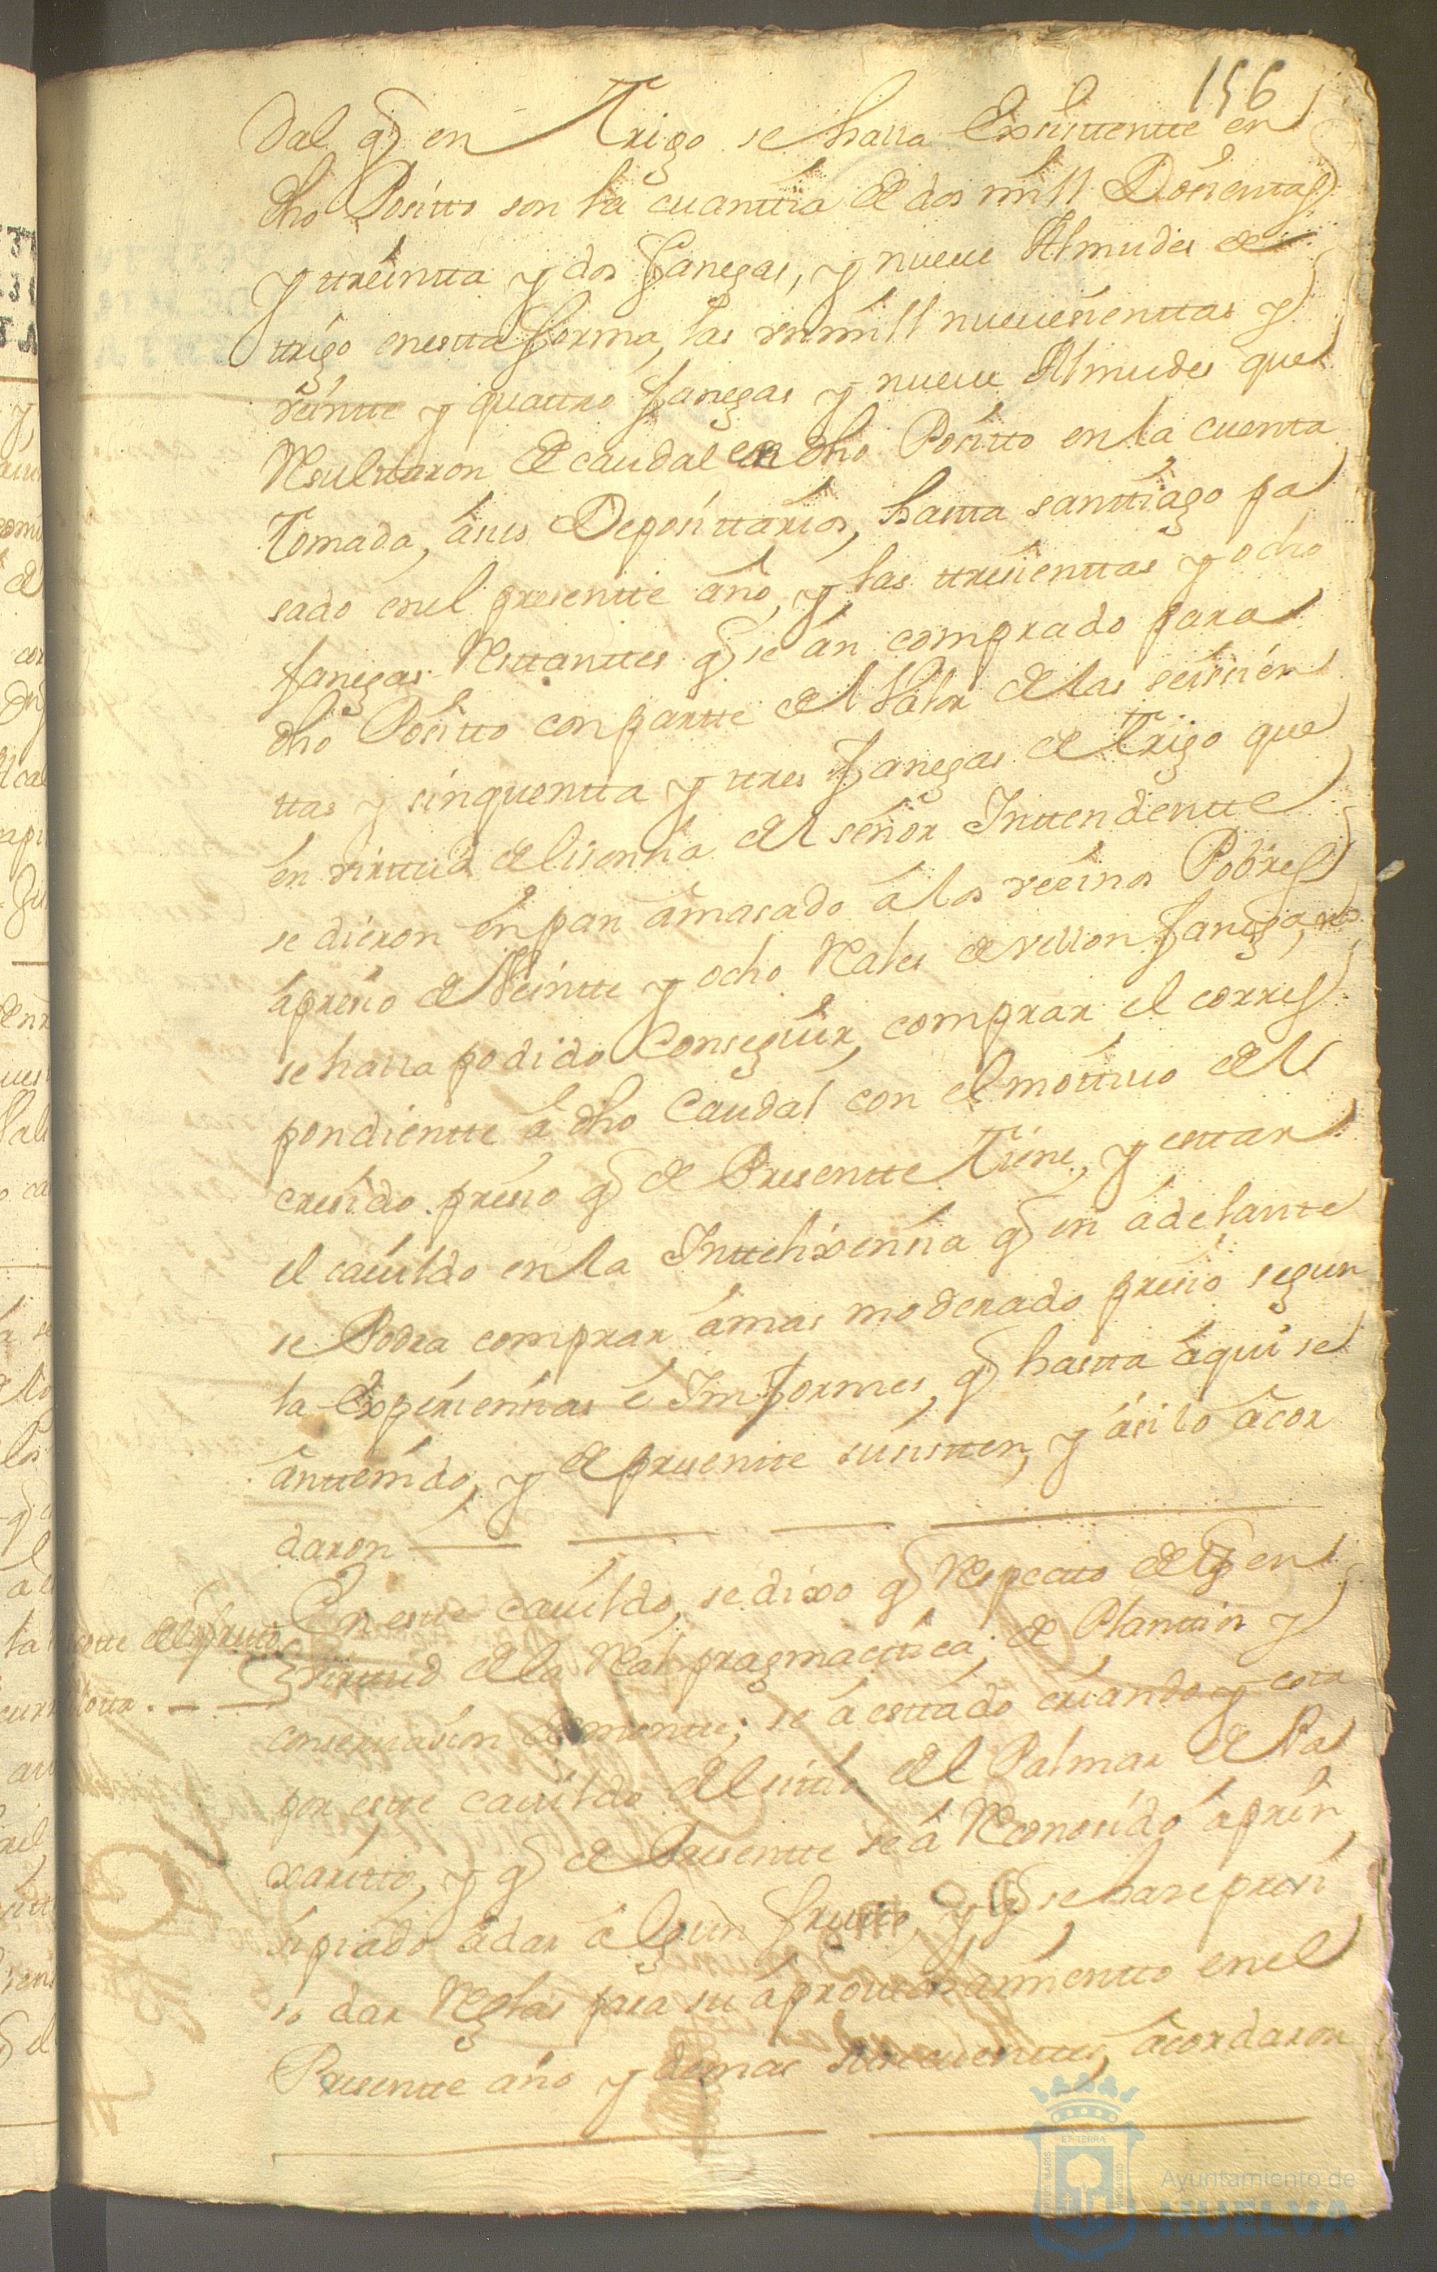 156
dal q̃ en Trigo se halla Existtentte en
dho Positto son la cuanttia de dos mill Dosientas
y ttreintta y dos fanegas, y nueve Almudes de
ttrigo en estta forma, las un mill nuevesienttas y
veintte y quattro fanegas y nueve Almudes que
Resulttaron de caudal en dho Positto en la cuenta
Tomada, á sus Deposittarios, hastta santtiago pa
sado en el presentte año, y las ttresienttas y ocho
fanegas Resttanttes q̃ se án comprado para
dho Positto con partte del Valor de las seisien
ttas y sinquentta y ttres fanegas de Trigo que
en virttud de lisensia del señor Inttendentte
se dieron en pan amasado á los vecinos Pobres
á presio de Veintte y ocho Rales de vellon fanega, no
se halla podido Conseguir, comprar el corres
pondientte á dho Caudal con el mottivo del
cresido presio q̃ de Presentte Tiene, y esttar
el cavildo en la Inttelixensia q̃ en adelante
se Podra comprar á mas moderado presio segun
la Experiensias é Imformes, q̃ hastta aqui se
án ttenido, y de presentte susistten, y ási lo acor
daron
En estte cavildo, se dixo q̃ Respectto de q̃ en
virttud de la Real pragmacttica, de Planttin y
conservasion de montte, se á esttado criando y cota
por estte cavildo el sittio del Palmar de Pa
xaritto, y q̃ de Presentte se á Reconosido á prin
sipiado á dar algun frutto, y q̃ se hase presi
so dar Reglas para su áprovechamientto en el
Presentte año y demas subcecuenttes, acordaron
Ayuntamiento de
HUELVA